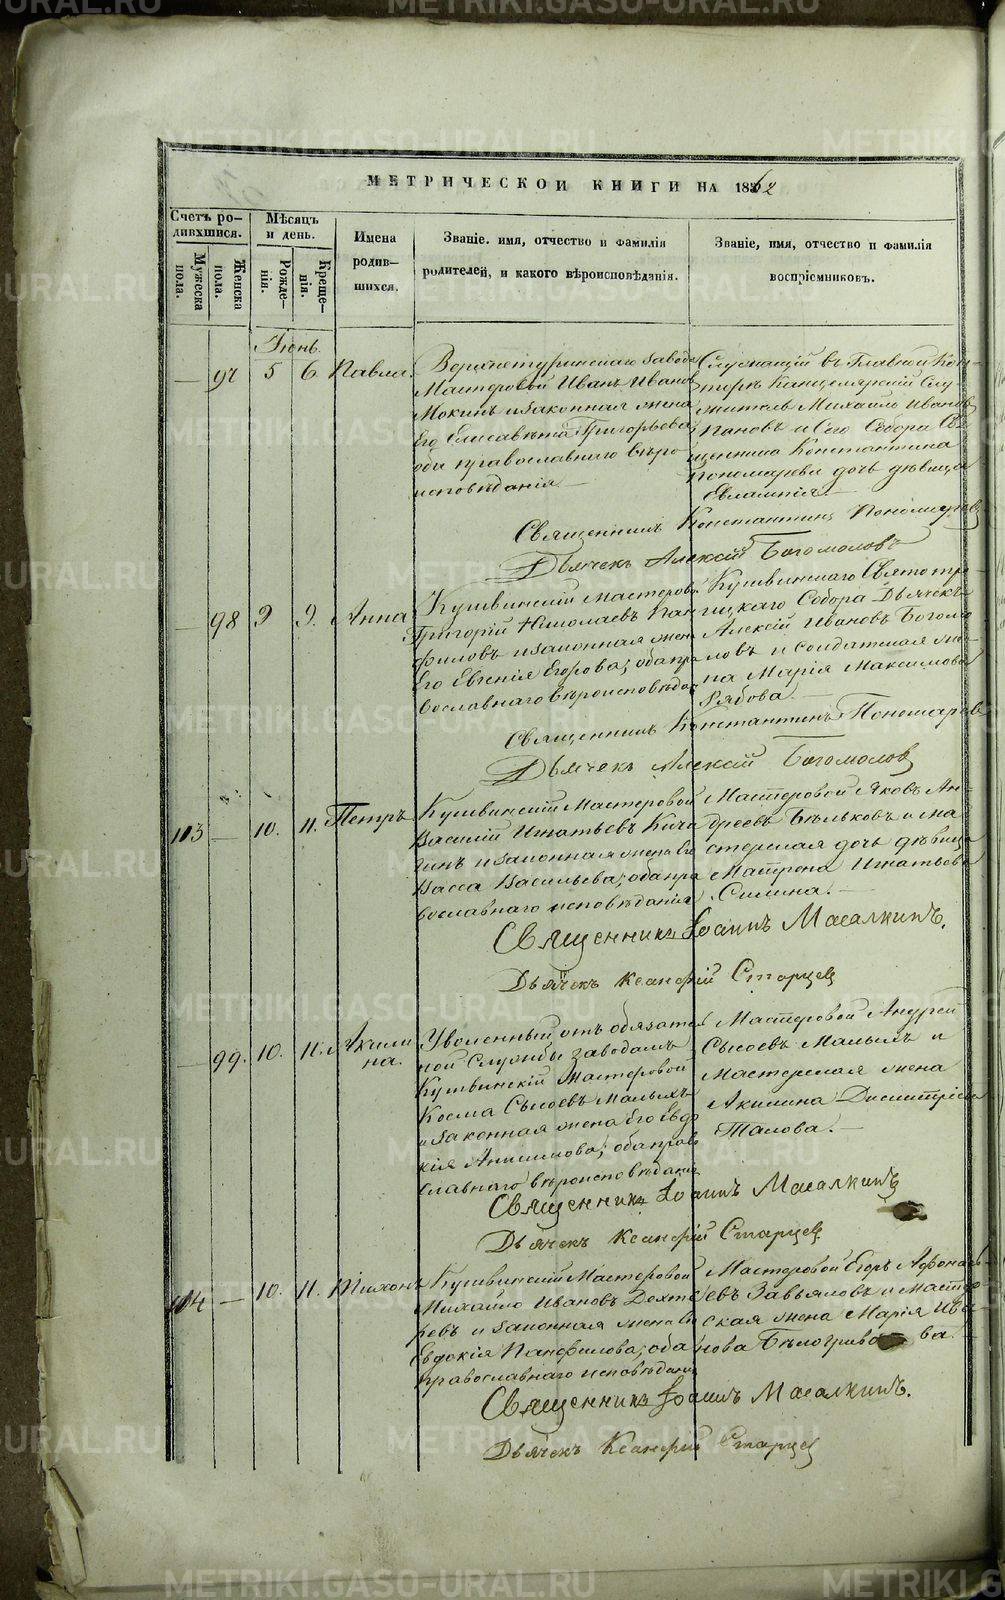 МЕТРИЧЕСКОЙ КНИГИ НА 1862
Счетъ родившихся.
Мужеска пола.
Женска пола.
Мѣсяцъ и день.
Рожденія.
Крещенія.
Имена родившихся.
Званіе. имя, отчество и фамилія родителей, и какого вѣроисповѣданія.
Званіе, имя, отчество и фамилія воспріемниковъ.
Іюнь.
— 97 5 6 Павла.
Верхнетуринскаго завода
Мастеровой Иванъ Иванов
Мокинъ и законная жена
Его Елисавета Григорьева;
оба православнаго вѣро
исповѣданія —
Служащій въ Главной Кон-
торѣ Канцелярскій Слу-
житель Михаилъ Ивановъ
Пановъ и Сего Собора Свя
щенника Константина
Пономарева дочь дѣвица
Евлампія. —
Священникъ Константинъ Пономаревъ
Дьячекъ Алексій Богомоловъ
— 98 9 9. Анна
Кушвинскій мастеровой
Григорій Николаевъ Пан
филовъ и законная жена
Его Евгенія Егорова; оба пра
вославнаго вѣроисповѣдан
Кушвинскаго Святотро-
ицкаго Собора Дьячекъ
Алексій Ивановъ Богомо
ловъ и солдатская же-
на Марія Максимова
Рябова. —
Священникъ Константинъ Пономаревъ
Дьячекъ Алексій Богомолов
113 — 10. 11. Петръ
Кушвинскій Мастеровой
Василій Игнатьевъ Кича
гинъ и законная жена Его
Васса Васильева; оба пра
вославнаго исповѣданія
Мастеровой Яковъ Ан-
дреевъ Бѣльковъ и ма
стерская дочь дѣвица
Матрена Игнатьева
Силина. —
Священникъ Іоаннъ Масалкинъ.
Дьячекъ Ксанфій Старцев
— 99. 10. 11. Акили
на.
Уволенный отъ обязатель
ной службы заводамъ
Кушвинскій Мастеровой
Косма Сысоевъ Малыхъ
и законная жена Его Евдо
кія Анисимова; оба право
славнаго вѣроисповѣдания
Мастеровой Андрей
Сысоевъ Малыхъ и
мастерская жена
Акилина Дмитріева
Талова. —
Священникъ Іоаннъ Масалкинъ
Дьячекъ Ксанфій Старцев
114 — 10. 11. Тихонъ
Кушвинскій Мастеровой
Михайло Ивановъ Дехте
ревъ и законная жена Его
Евдокія Панфилова; оба
православнаго исповѣдания
Мастеровой Егоръ Афонась-
евъ Завьяловъ и мастер
ская жена Марія Ива
нова Бѣлогривова —
Священникъ Іоаннъ Масалкинъ.
Дьячекъ Ксанфій Старцев
METRIKI.GASO-URAL.RU